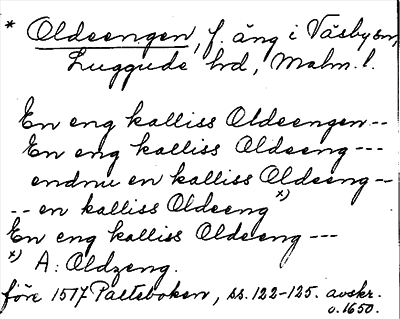 * Oldeengen, f. äng i Väsby sn,
Luggude hd, Malm. l.
En eng kalliss Oldeengen --
En eng kalliss Oldeeng ---
endnu en kalliss Oldeeng --
-- en kalliss Oldeeng x)
En eng kalliss Oldeeng ---
x) A: Oldzeng.
före 1517 Palteboken, ss. 122-125. avskr.
o. 1650.